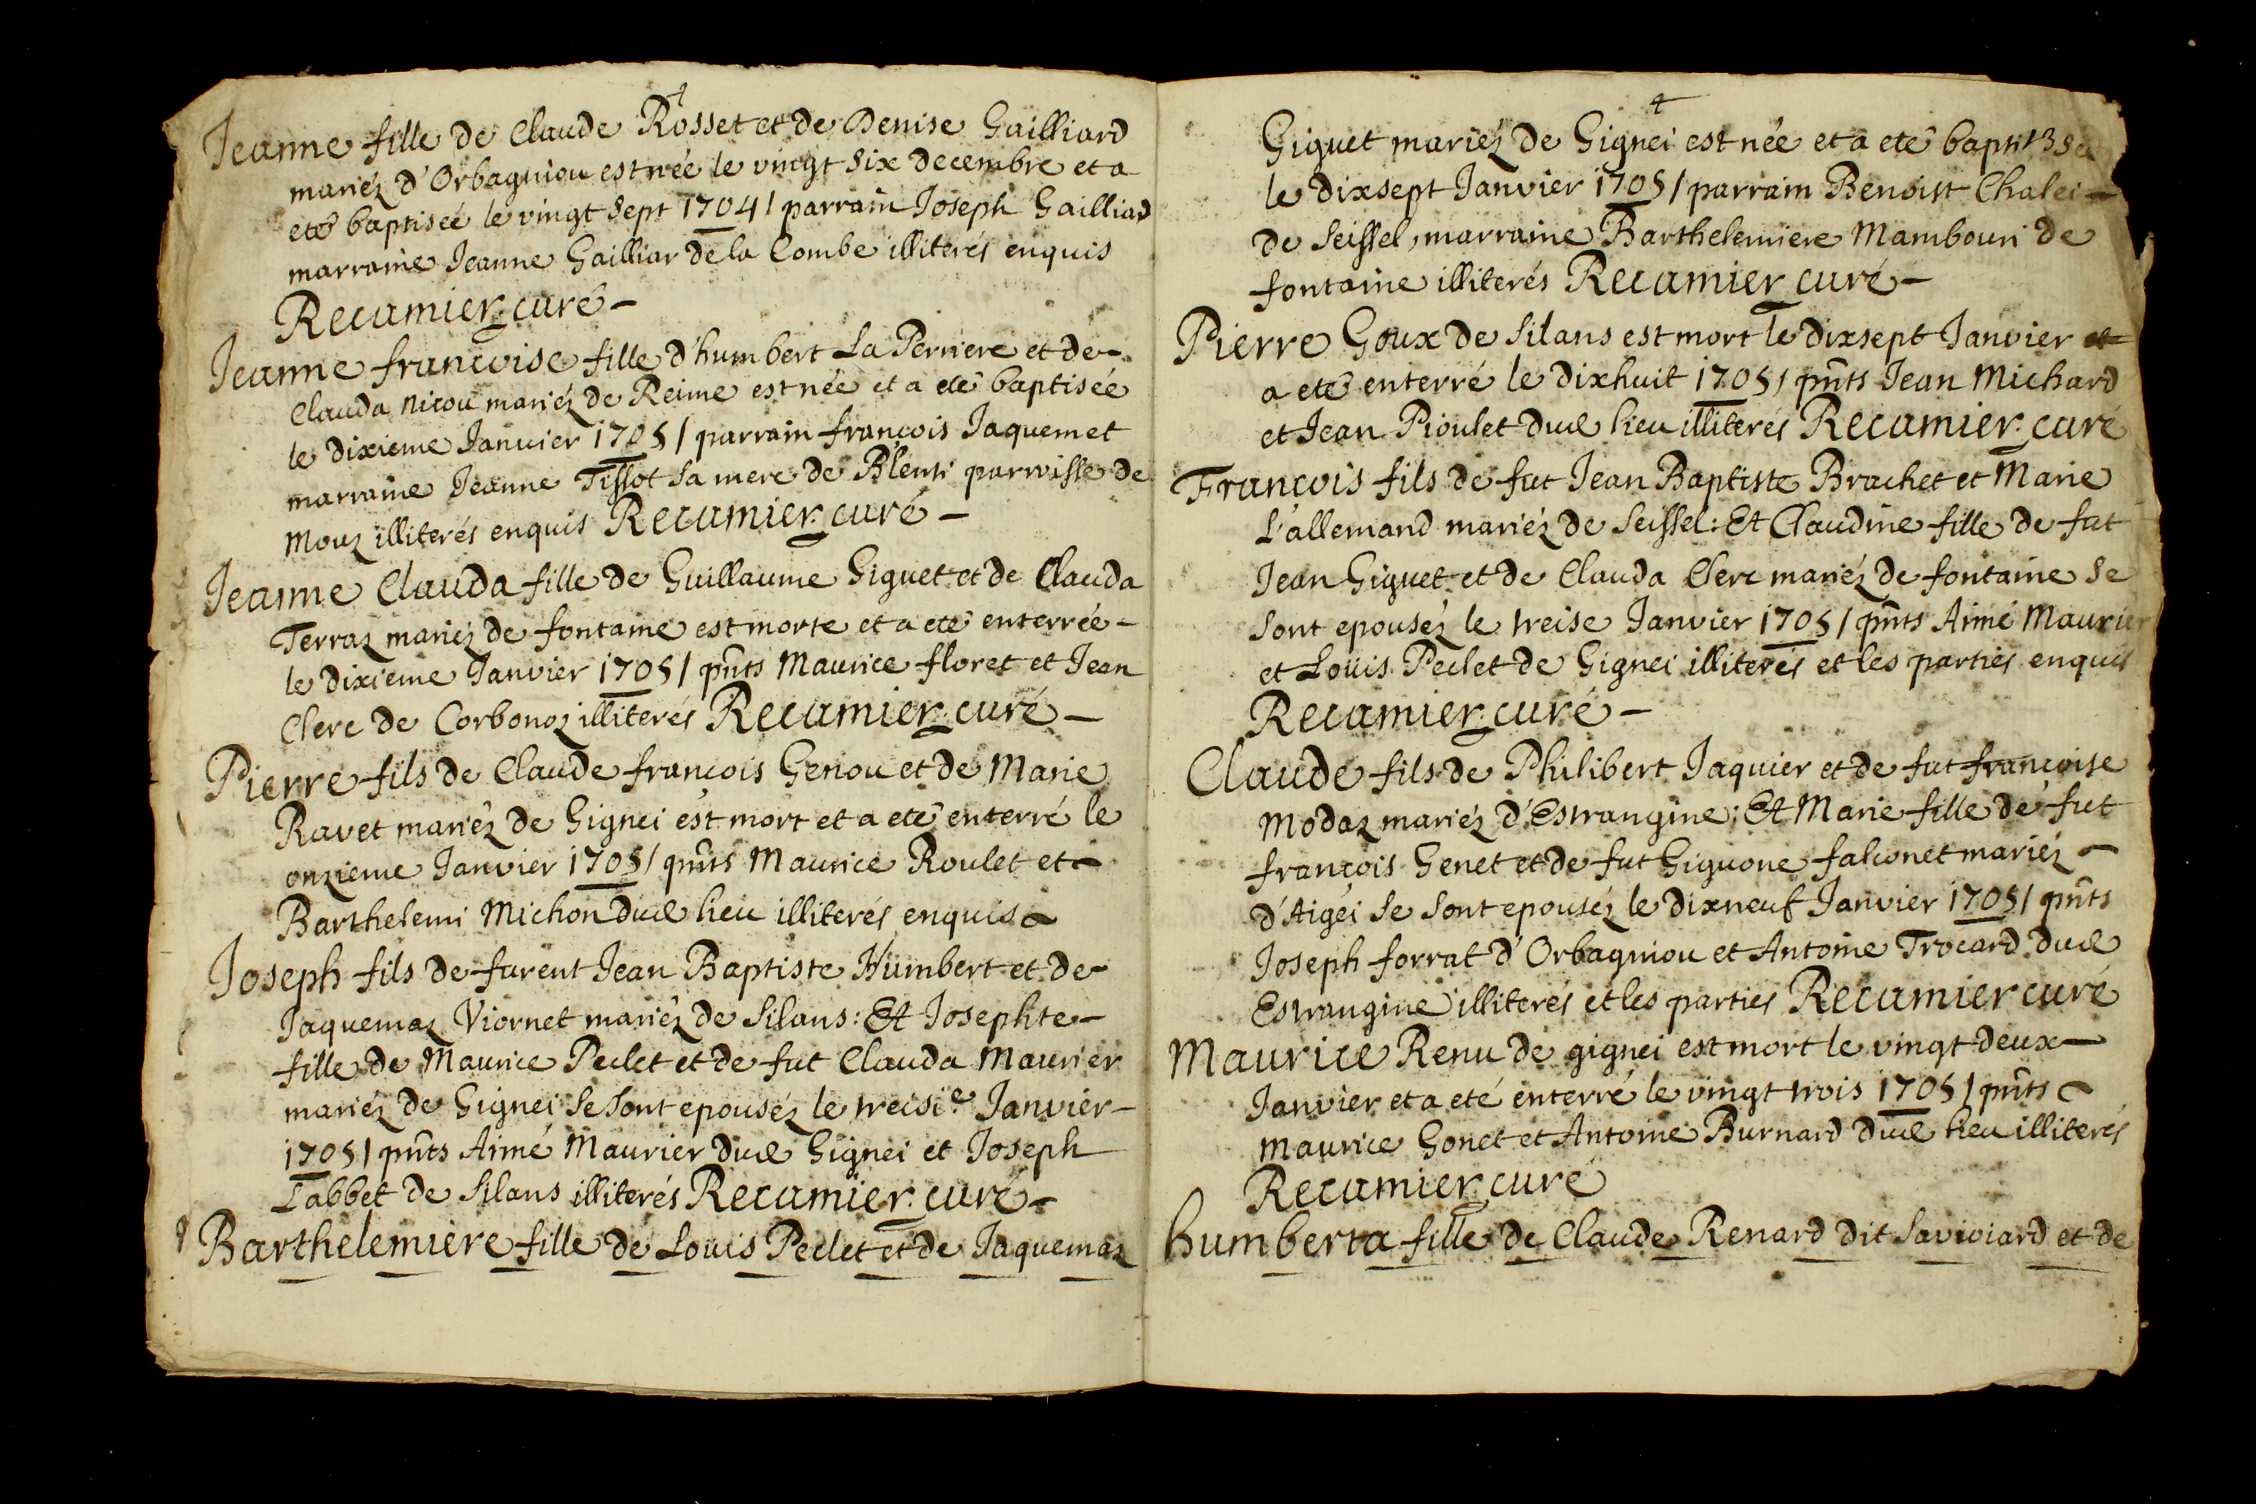 Jeanne fille de Claude Rosset et de Denise Gailliard
mariéz d'Orbagniou est née le vingt six decembre et a
eté baptiseé le vingt sept 1704 / parrain Joseph Gailliard
marraine Jeanne Gailliar de la Combe illiterés enquis
Recamier curé –
Jeanne francoise fille d'humbert La Perriere et de –
Clauda Nicou mariéz de Reime est née et a eté baptisée
le dixieme Janvier 1705 / parrain françois Jaquemet
marraine Jeanne Tissot sa mere de Blenti parroisse de
Mouz illiterés enquis Recamier curé –
Jeanne Clauda fille de Guillaume Giguet et de Clauda
Terraz mariéz de fontaine est morte et a eté enterrée –
le dixieme Janvier 1705 / pñts Maurice floret et Jean
Clerc de Corbonoz illiterés Recamier curé –
Pierre fils de Claude françois Genou et de Marie
Ravet mariéz de Gignei est mort et a eté enterré le
onzieme Janvier 1705 / pñts Maurice Roulet et –
Barthelemi Michon dud lieu illiterés enquis
Joseph fils de furent Jean Baptiste Humbert et de –
Jaquemaz Viornet mariéz de Silans : Et Josephte –
fille de Maurice Peclet et de fut Clauda Maurier
mariéz de Gignei se sont epouséz le treisi.e Janvier –
1705 / pñts Aimé Maurier dud Gignei et Joseph
Labbet de Silans illiterés Recamier curé –
Barthelemiere fille de Louis Peclet et de Jaquemaz
Giguet mariéz de Gignei est née et a eté baptisée
le dixsept Janvier 1705 / parrain Benoist Chalei –
de Seissel, marraine Barthelemiere Mambouri de
fontaine illiterés Recamier curé –
Pierre Goux de Silans est mort le dixsept Janvier et
a eté enterré le dixhuit 1705 / pñts Jean Michard
et Jean Pioulet dud lieu illiterés Recamier curé
Francois fils de fut Jean Baptiste Brachet et Marie
L'allemand mariéz de Seissel : Et Claudine fille de fut
Jean Giguet et de Clauda Clerc mariéz de fontaine se
sont epouséz le treise Janvier 1705 / pñts Aimé Maurier
et Loüis Peclet de Gignei illiterés et les parties enquis
Recamier curé –
Claude fils de Philibert Jaquier et de fut francoise
Modaz mariéz d'Estrangine : Et Marie fille de fut
françois Genet et de fut Giguone falconet mariéz –
d'Aigei se sont epouséz le dixneuf Janvier 1705 / pñts
Joseph forrat d'Orbagniou et Antoine Trocard dud
Estrangine illiterés et les parties Recamier curé
Maurice Renu de gignei est mort le vingt deux –
Janvier et a eté enterré le vingt trois 1705 / pñts
Maurice Gonet et Antoine Burnard dud lieu illiterés
Recamier curé
humberta fille de Claude Renard dit Savoiard et de